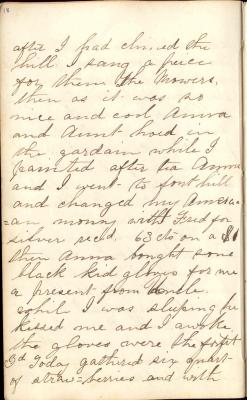 18
after I had climed the
hill I sang a peice
for them the Mowers.
then as it was so
nice and cool Anna
and Aunt hoed in
the gardain while I
painted after tea Anna
and I went to fort hill
and changed my Americ
=an money with Fred for
silver recd. 63 cts on a $1
then Anna bought some
black kid gloves for me
a present from Uncle.
whil I was sleeping he
kissed me and I awoke
the gloves were the forfit
3d Today gathered six quart
of straw=berries and with